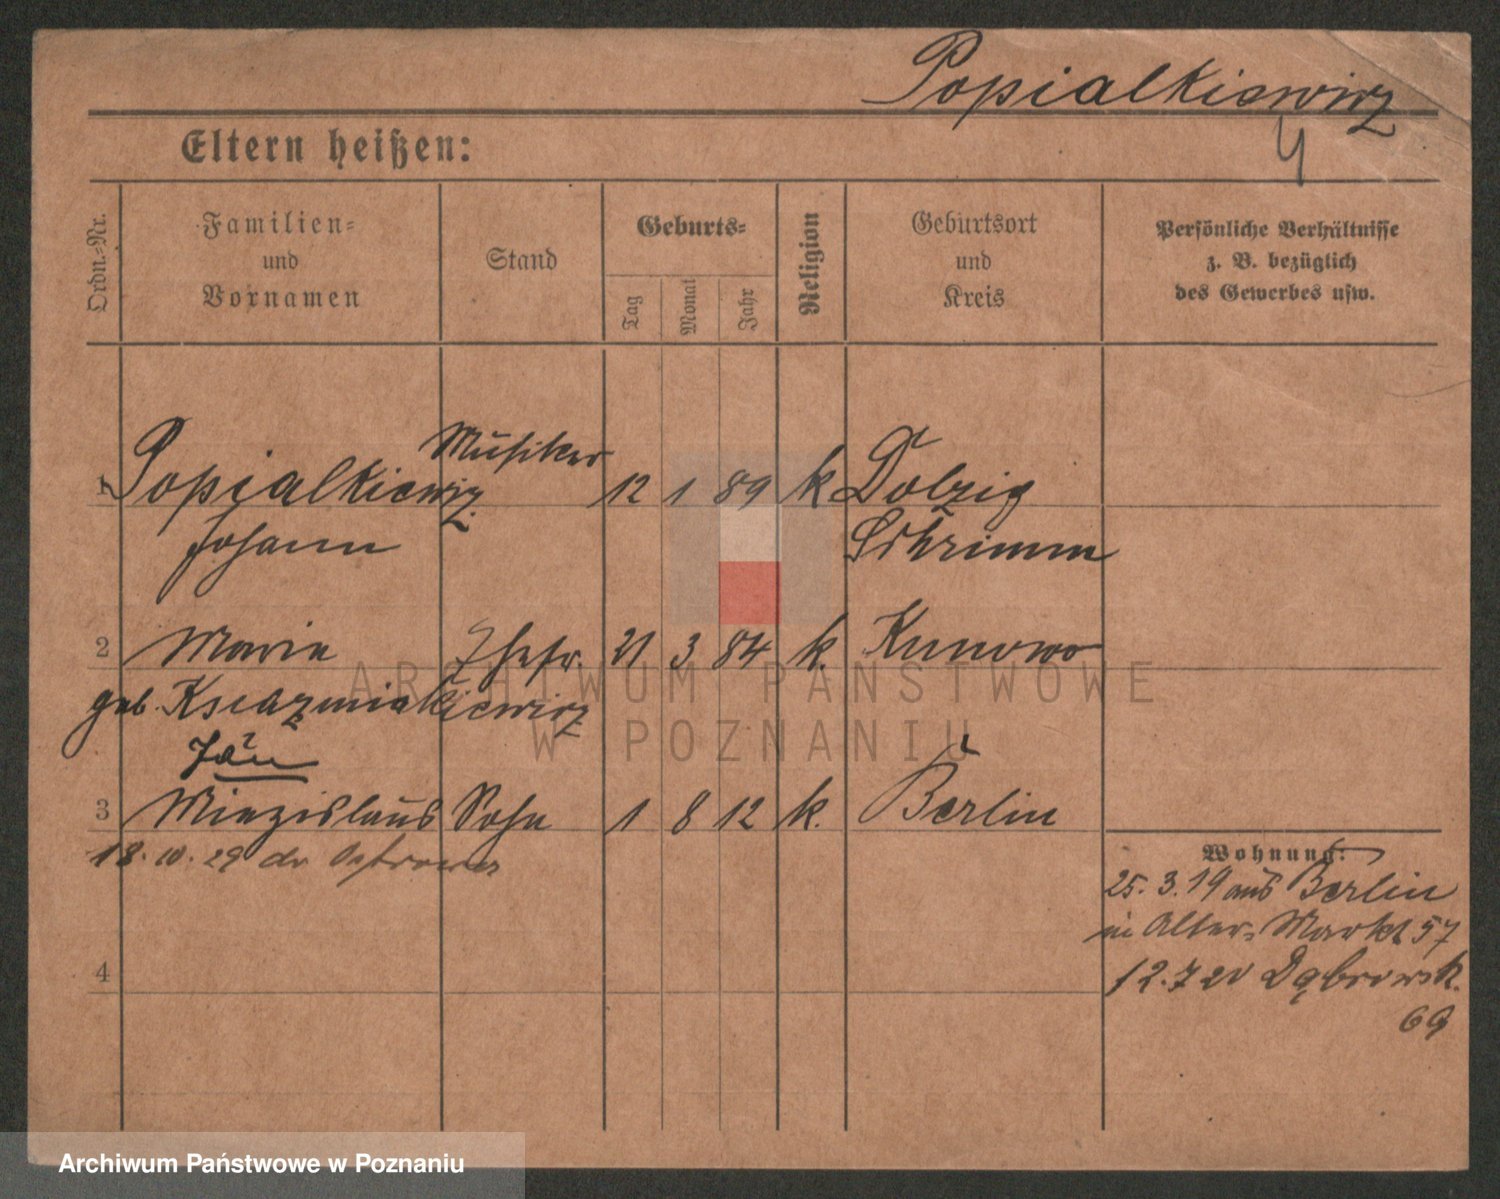 Popialkiewicz
4
Eltern heißen:
Ordn.-Nr.
Familien-
und
Vornamen
Stand
Geburts-
Tag
Monat
Jahr
Religion
Geburtsort
und
Kreis
Persönliche Verhältnisse
z. B. bezüglich
des Gewerbes usw.
1 Popialkiewicz Musiker 12 1 89 k Dolzig
Johann Schrimm
2 Maria Ehefr. 21 3 84 k. Kunowo
geb.
Jan
3 Miezislaus Sohn 1 8 12 k. Berlin
18. 10. 29 do Ostrowa
4
Wohnung:
25. 3. 19 aus Berlin
in Alter-Markt 57
12. 7 20 Dąbrowsk.
69
ARCHIWUM PAŃSTWOWE
W POZNANIU
Archiwum Państwowe w Poznaniu